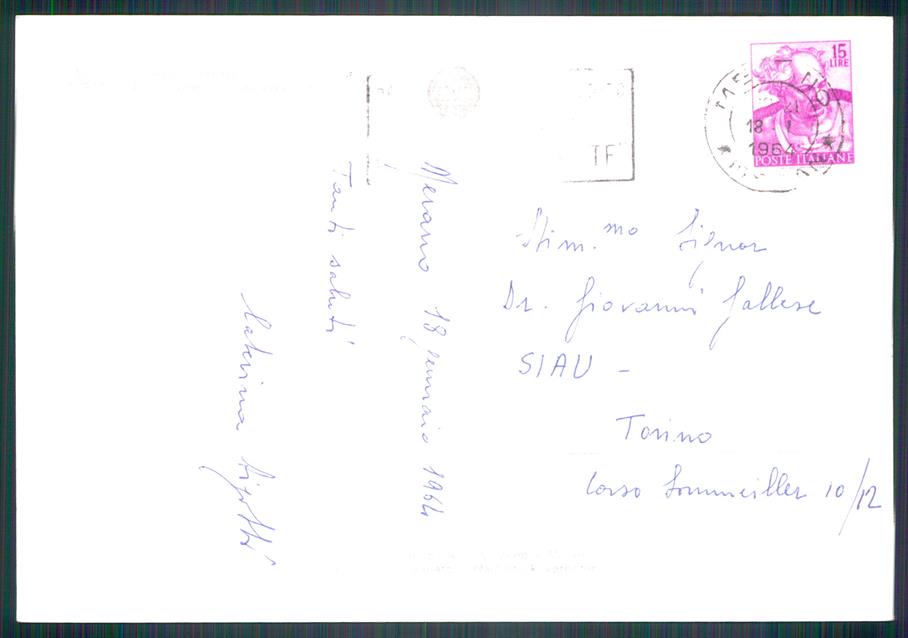 Merano 18 gennaio 1964
Tanti saluti
Caterina Rigotti
15
LIRE
POSTE ITALIANE
18
1964
TE
Stim.mo Signor
Dr. Giovanni Gallese
SIAU -
Torino
Corso Sommeiller 10/12